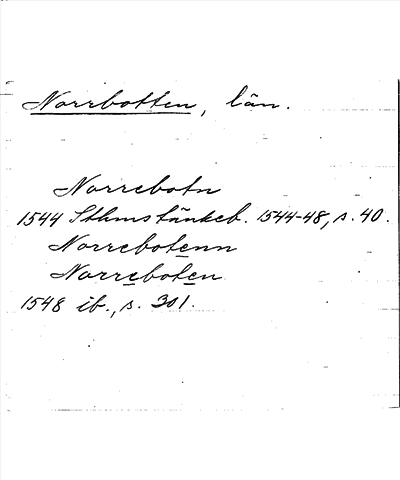 Norrbotten, län.
Norrebotn
1544 Sthms tänkeb. 1544-48, s. 40.
Norrebotenn
Norreboten
1548 ib., s. 301.